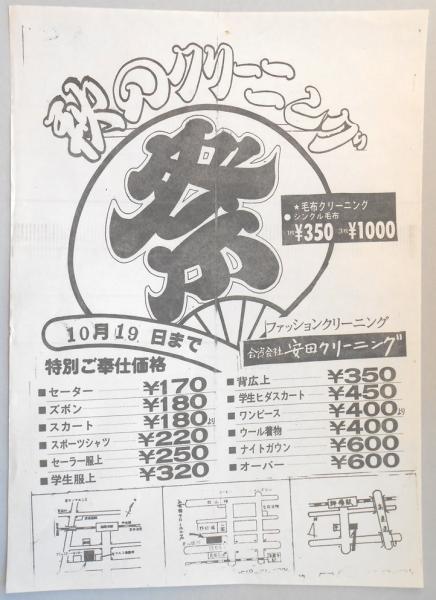 秋のクリーニング
祭
★毛布クリーニング
●シングル毛布
1枚¥350 3枚¥1000
10月19日まで
ファッションクリーニング
合資会社 安田クリーニング
特別ご奉仕価格
■セーター ¥170
■ズボン ¥180
■スカート ¥180より
■スポーツシャツ ¥220
■セーラー服上 ¥250
■学生服上 ¥320
■背広上 ¥350
■学生ヒダスカート ¥450
■ワンピース ¥400より
■ウール着物 ¥400
■ナイトガウン ¥600
■オーバー ¥600